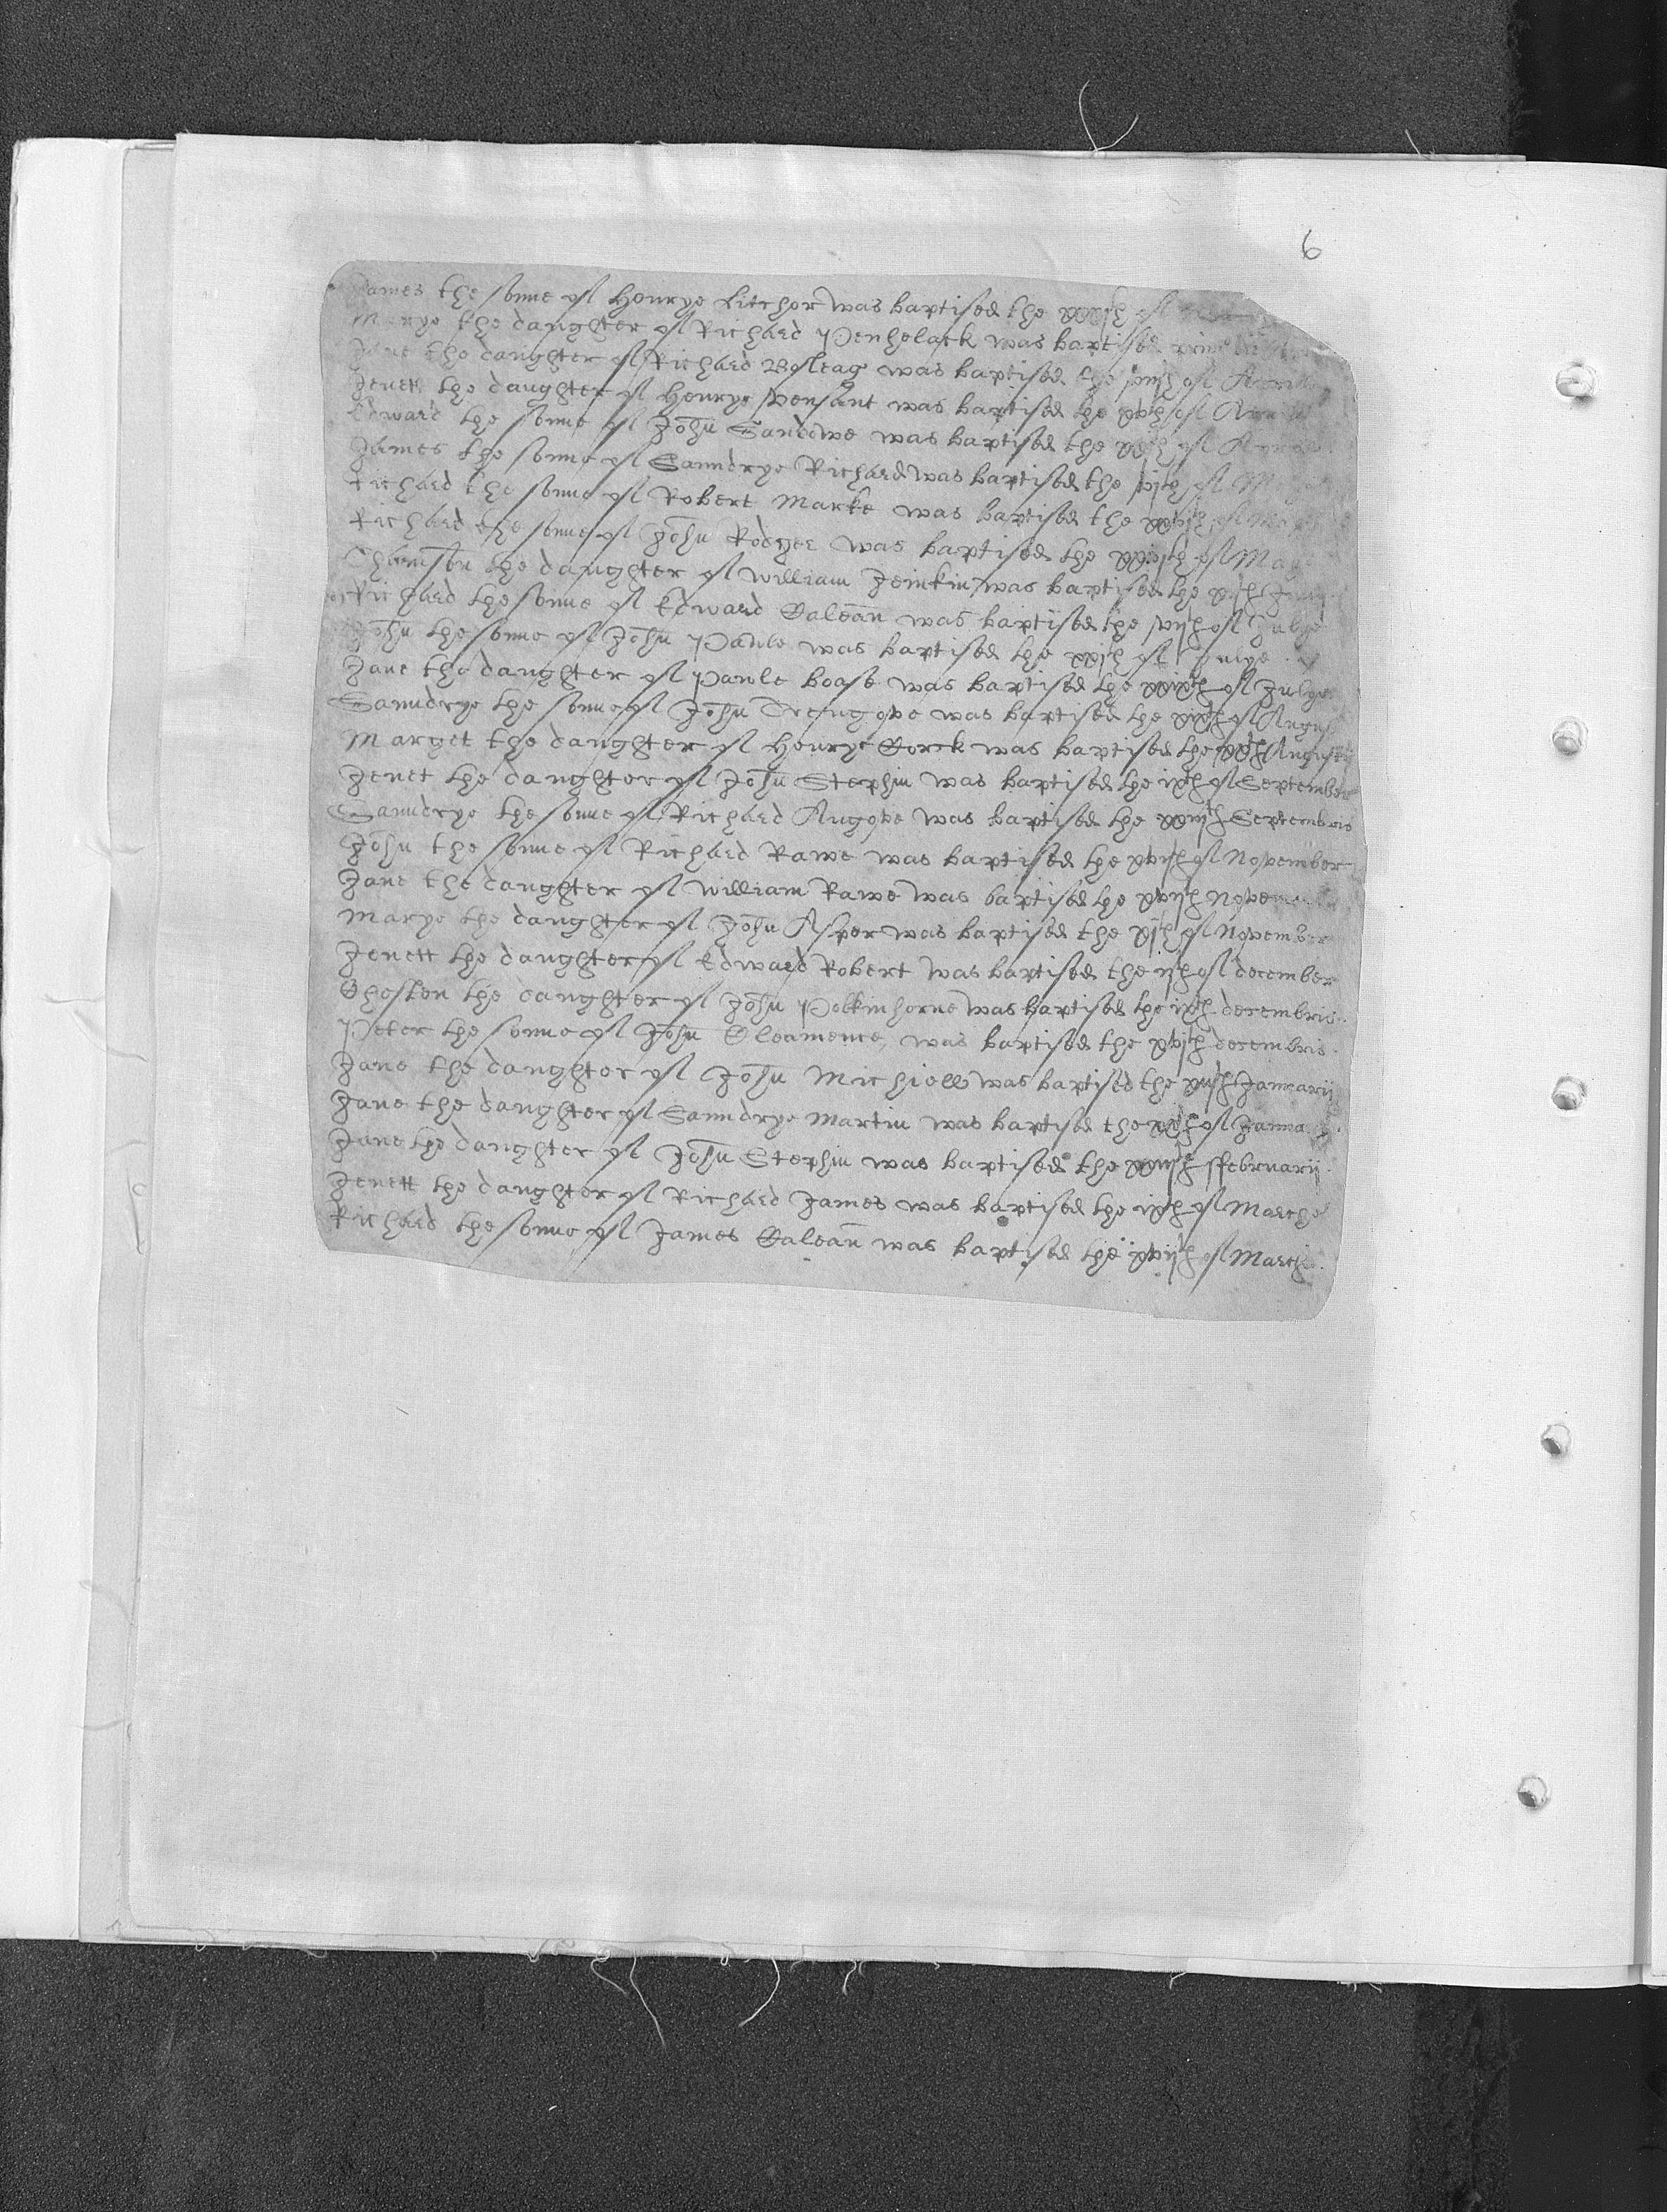 6
James the sonne of Henrye Litchor was baptised the xxvjth of
Marye the daughter of Richard Penhelack was baptised
Jane the daughter of Richard Bosleag was baptised the viijth of Aprill
Jenett the daughter of Henrye pensant was baptised the xvth of Aprill
Edward the sonne of John Sandowe was baptised the of Aprill
James the sonne of Sanndrye Richard was baptised the vjth of Maye
Richard the sonne of Robert Marke was baptised the xxvjth of Maye
Richard the sonne of John Rodger was baptised the of Maye
the daughter of william Jeinkin was baptised the
Richard the sonne of Edward Galean was baptised the vijth of Julye
John the sonne of John Pawle was baptised the xxjth of Julye
Jane the daughter of Pawle boase was baptised the xxixth of Julye
Sanndrye the sonne of John Trengove was baptised the xixth of August
Marget the daughter of Henrye Gorck was baptised the Augusti
Jenet the daughter of John Stephin was baptised the ixth of September
Sanndrye the sonne of Richard Angove was baptised the xxiijth Septembris
John the sonne of Richard Rawe was baptised the xvijth of November
Jane the daughter of william Rawe was baptised the xvijth
Marye the daughter of John Asper was baptised the xjth of November
Jenett the daughter of Edward Robert was baptised the ijth of december
the daughter of John Polkinhorne was baptised the ixth decembris
Peter the sonne of John Cleamence was baptised the xvjth decembris
Jane the daughter of John Michiell was baptised the xiijth Januarij
Jane the daughter of Sanndrye Martin was baptised the xxth of
Jane the daughter of John Stephin was baptised the xxiijth ffebruarij
Jenett the daughter of Richard James was baptised the ixth of Marche
Richard the sonne of James Galean was baptised the xvijth of Marche